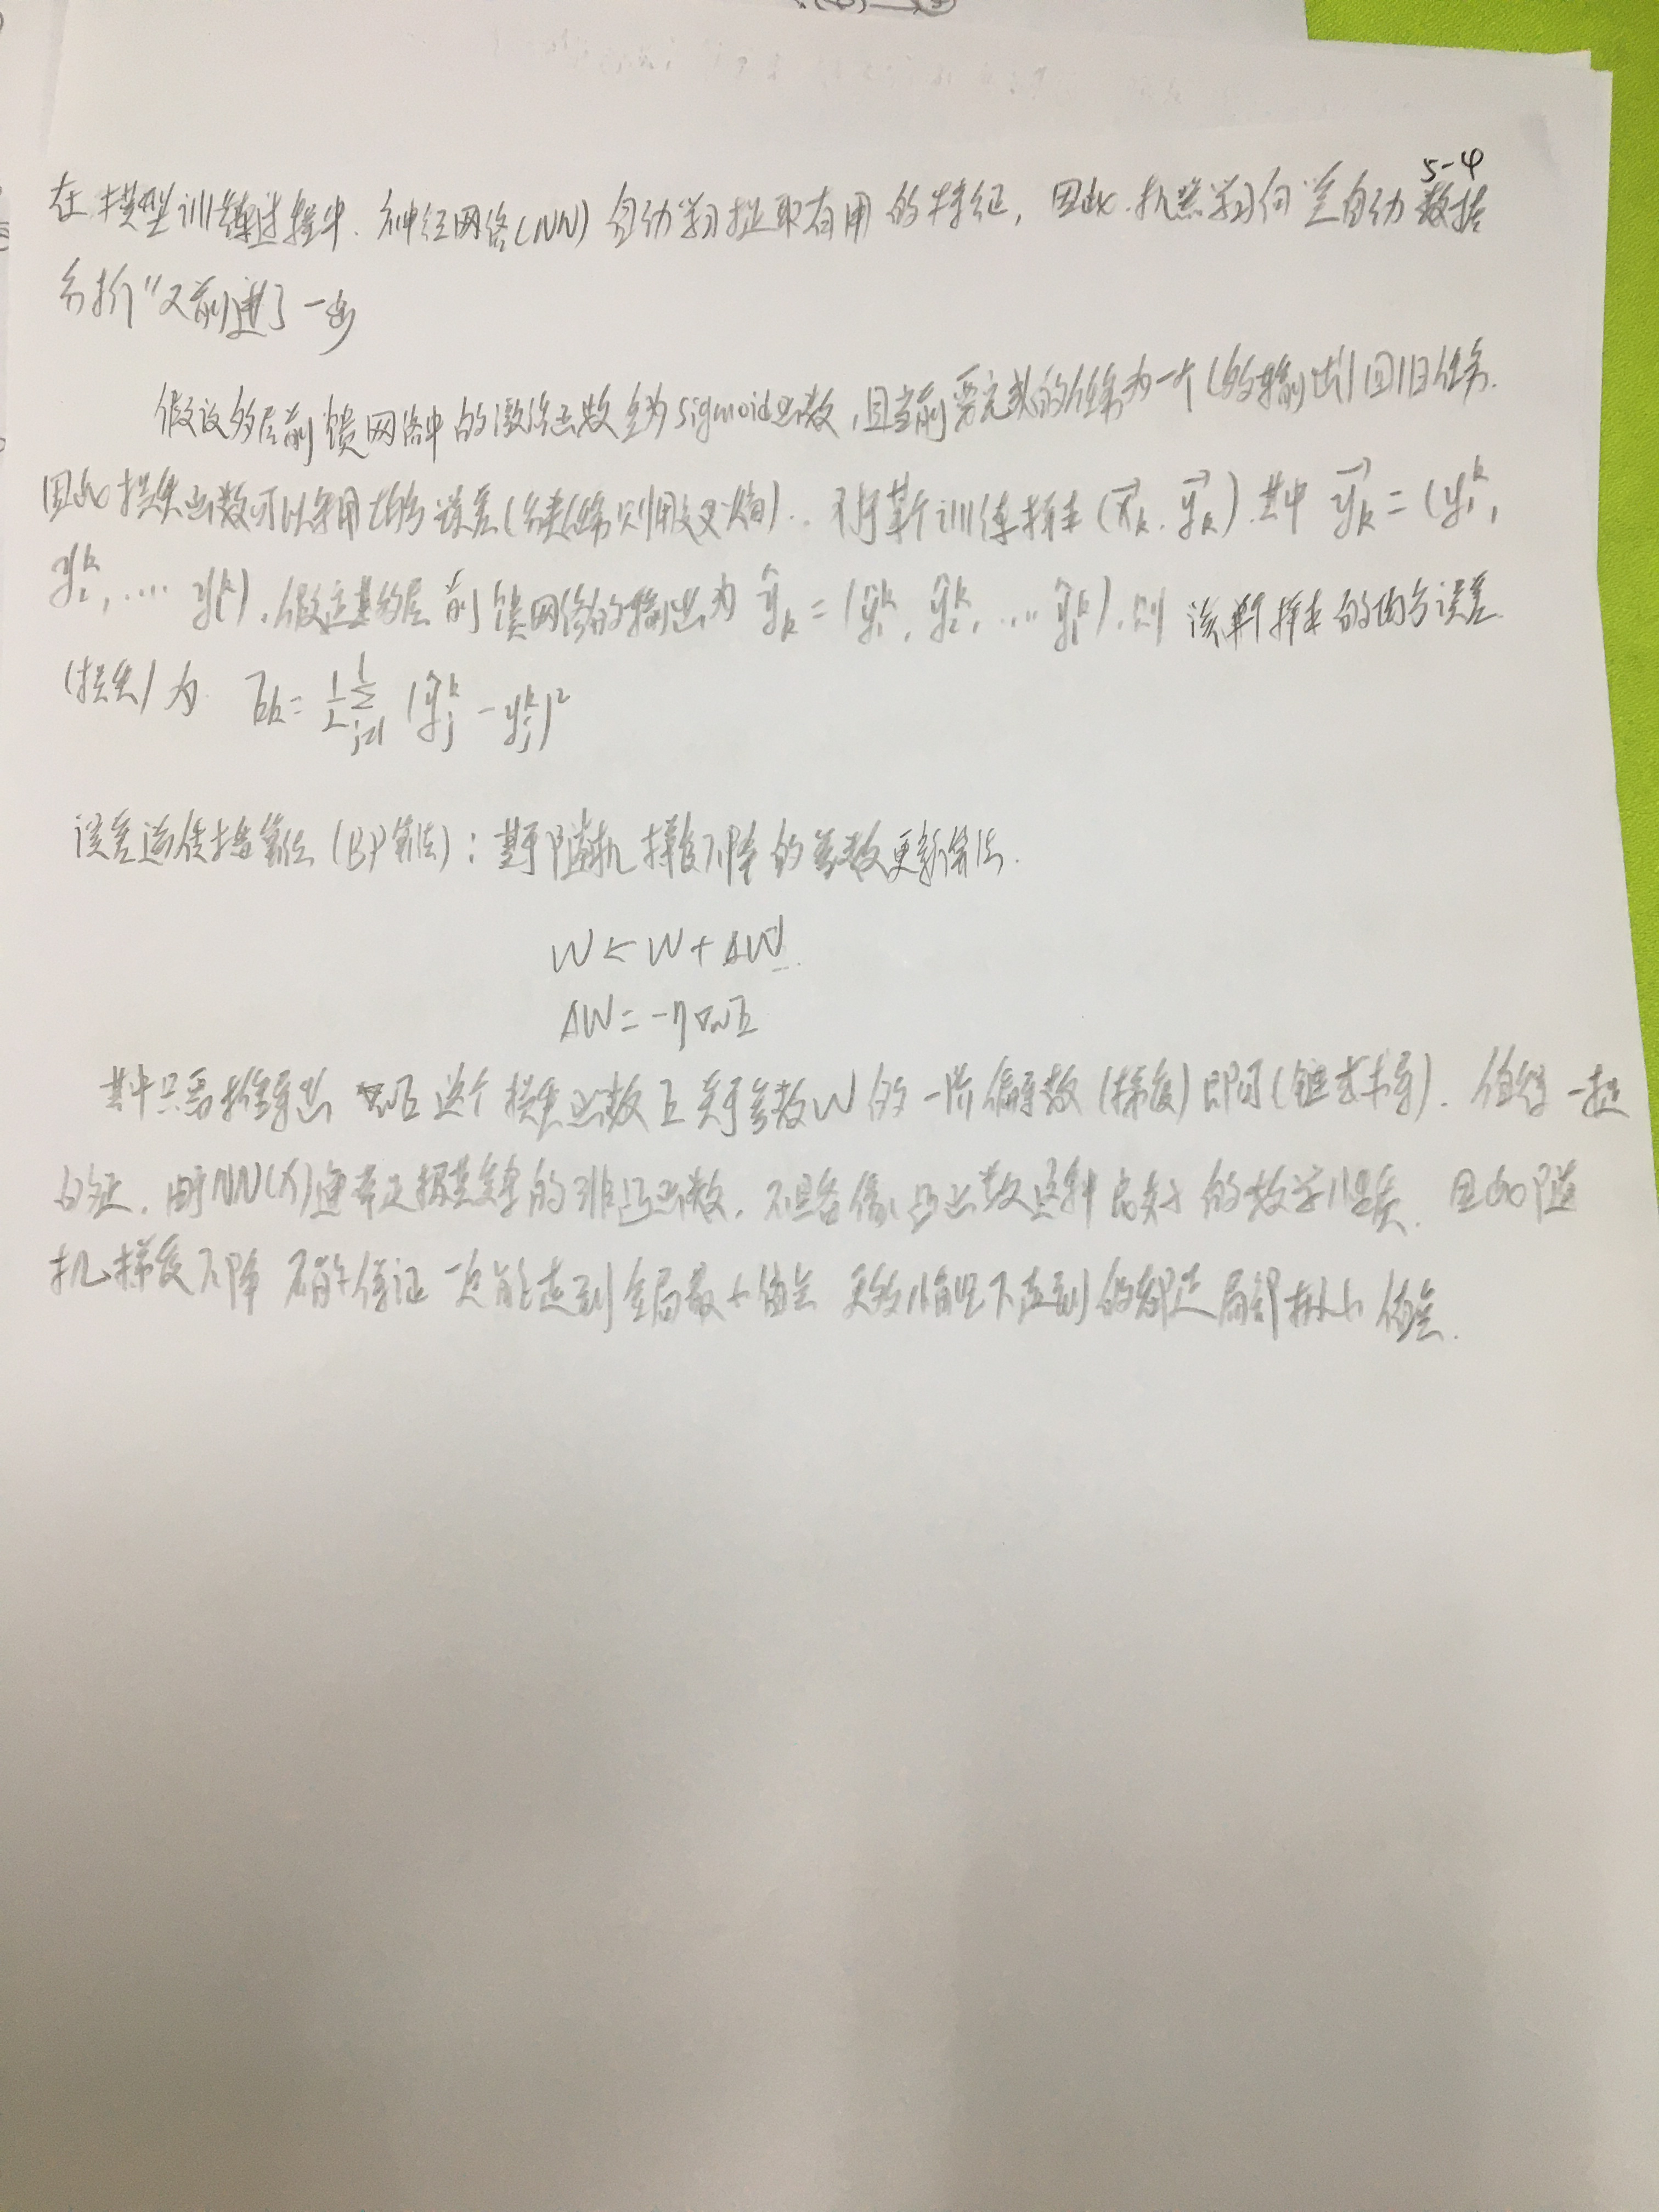 5-4
在模型训练过程中,神经网络(NN)自动学习提取有用的特征,因此,机器学习向"全自动数据
分析"又前进了一步
假设多层前馈网络中的激活函数全为sigmoid函数,且当前要完成的任务为一个(多输出)回归任务.
因此损失函数可以采用均方误差(分类任务则用交叉熵).对于某个训练样本(x⃗k, y⃗k).其中 y⃗k = (y₁ᵏ,
y₂ᵏ, .... yₗᵏ).假定其多层前馈网络的输出为 ŷk = (ŷ₁ᵏ, ŷ₂ᵏ, ... ŷₗᵏ).则该单个样本的均方误差
(损失)为 Ek = 1/2 Σⱼ₌₁ˡ (ŷⱼᵏ - yⱼᵏ)²
误差逆传播算法(BP算法):基于随机梯度下降的参数更新算法.
W ← W + ΔW
ΔW = -η∇wE
其中只需推导出 ∇wE 这个损失函数E关于参数W的一阶偏导数(梯度)即可(链式求导).值得一提
的是,由于NN(X)通常是极其复杂的非凸函数,不具备像凸函数这种良好的数学性质.因此随
机梯度下降不能保证一定能走到全局最小值点 更多情况下走到的都是局部极小值点.